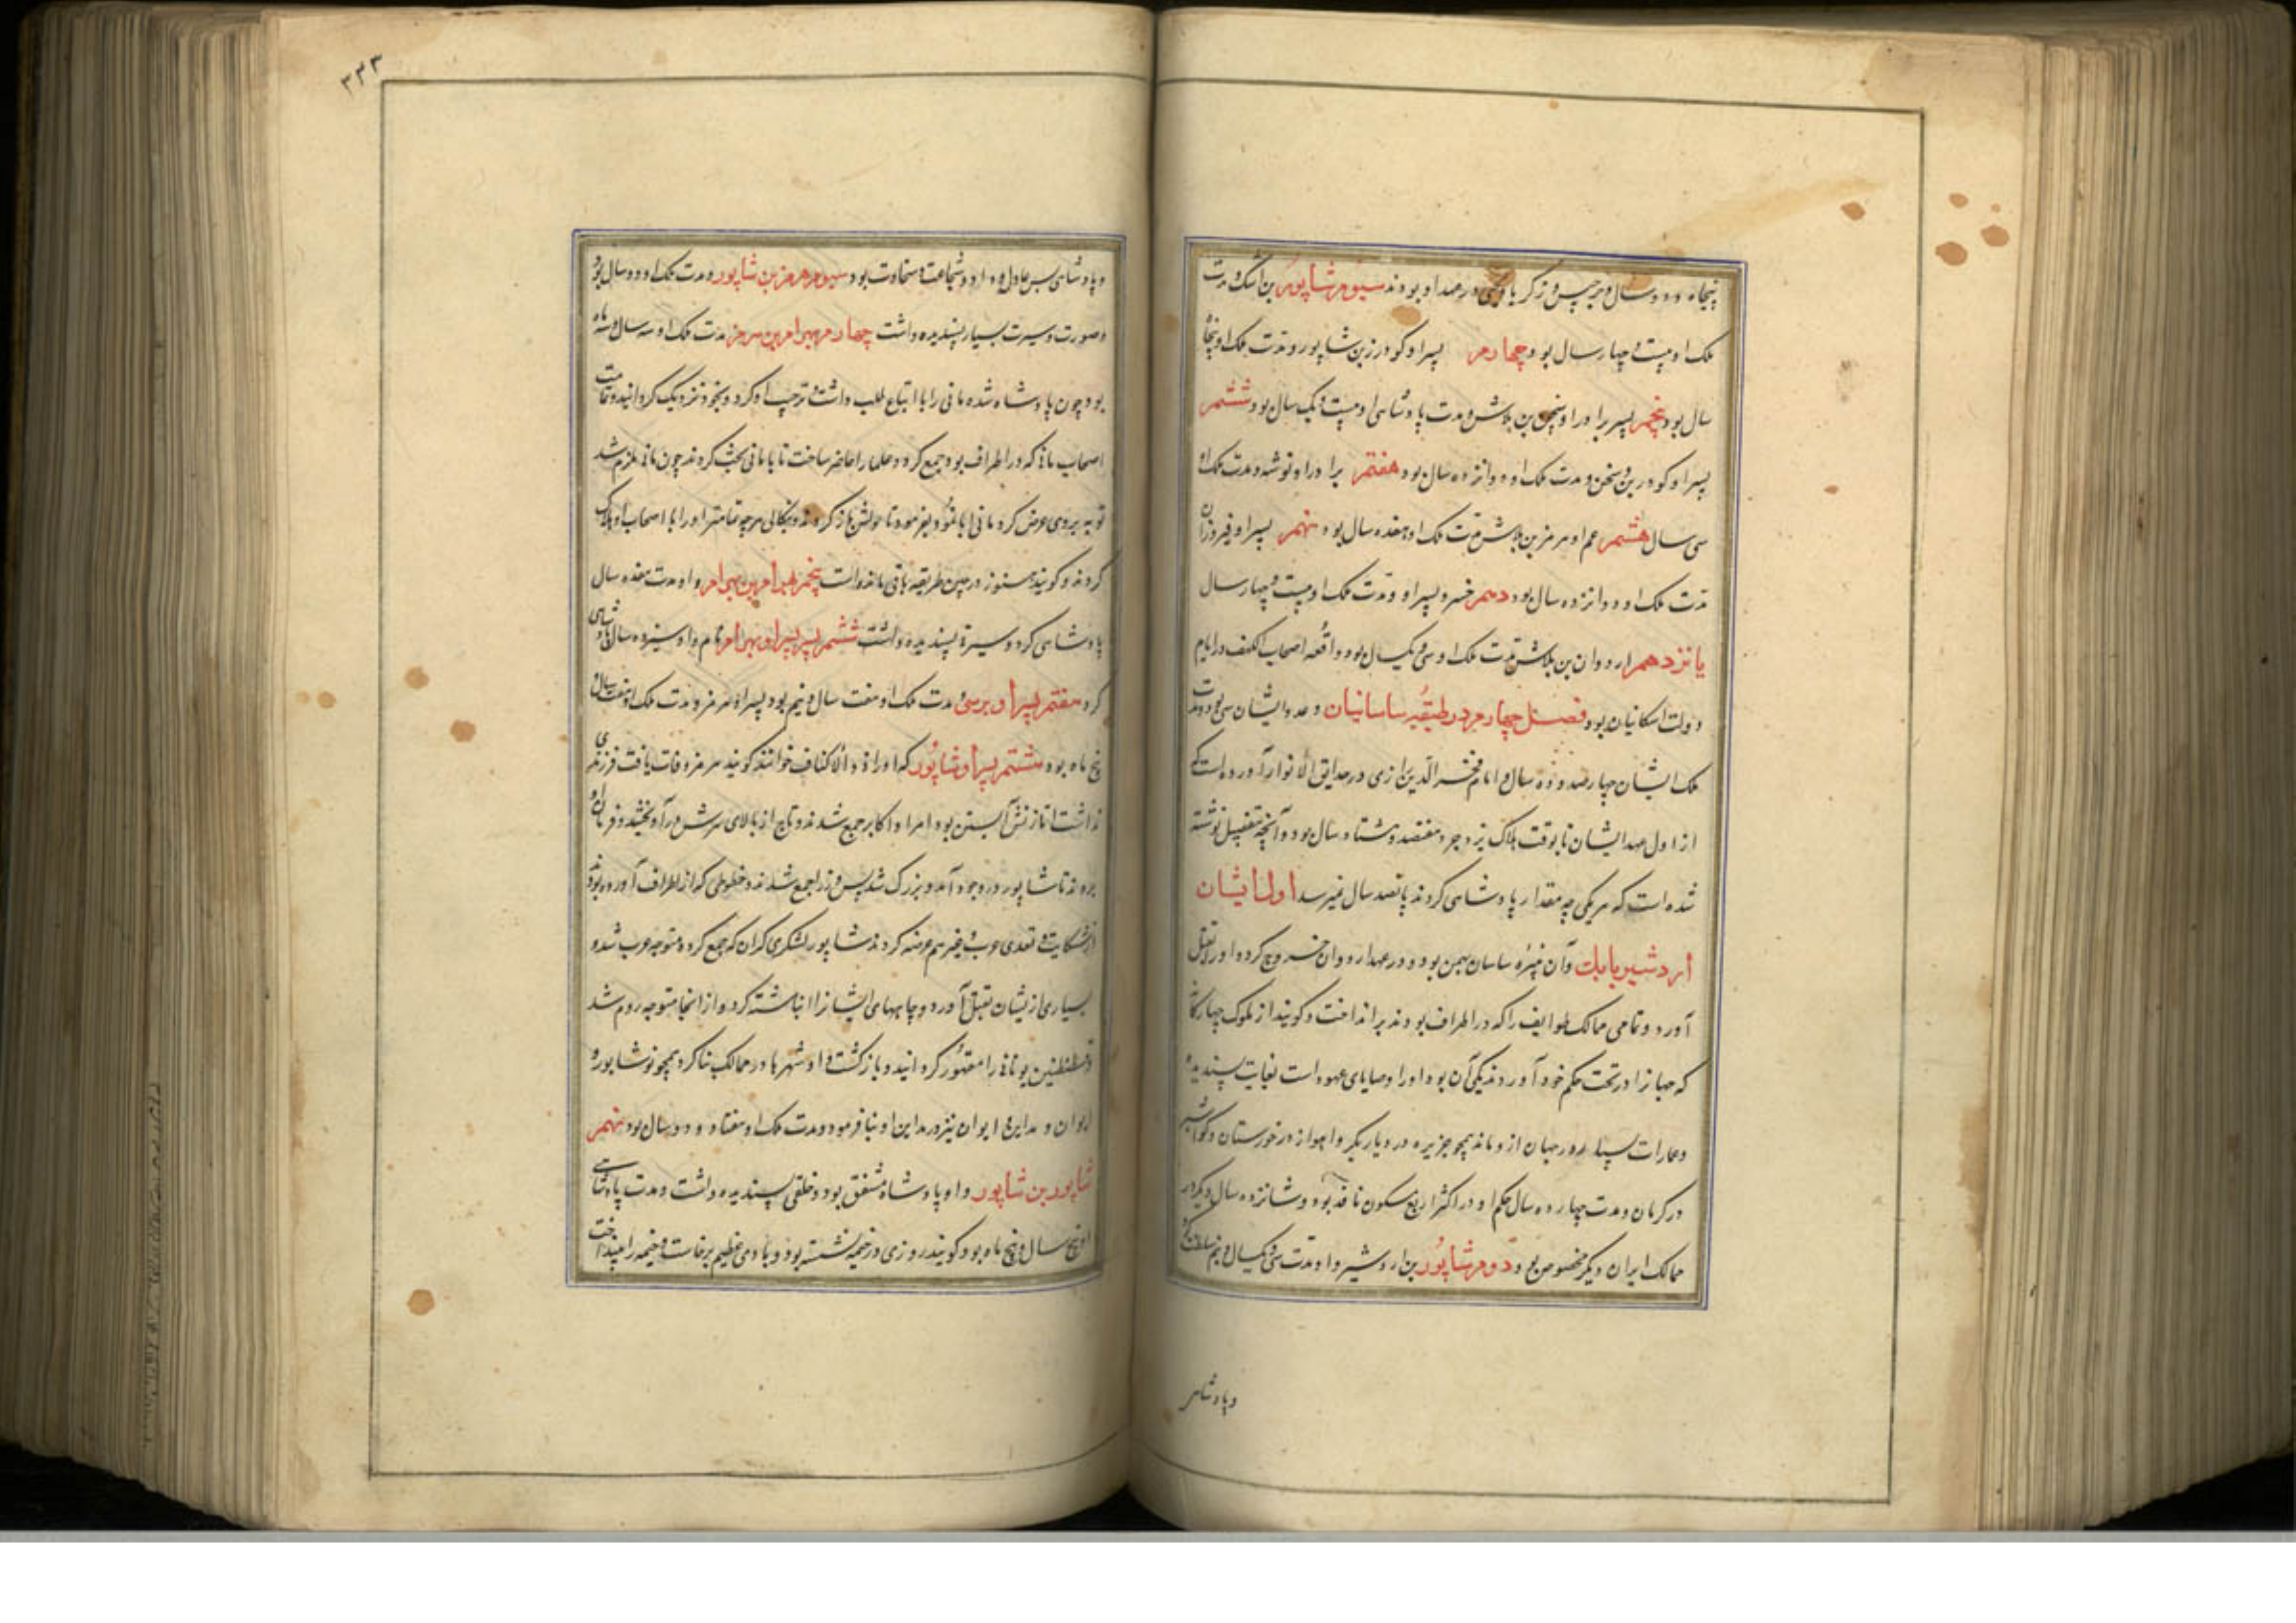 پنجاه و دو سال و جرجیس و زکریا و یحیی در عهد او بودند سیوم شاپور بن اشک و مدت
ملک او بیست و چهار سال بود چهارم پسر او کودرز بن شاپور و مدت ملک او پنجاه
سال بود پنجم پسر برادر او بن بلاش و مدت پادشاهی او بیست و یک سال بود ششم
پسر او کودرز بن و مدت ملک او دوازده سال بود هفتم برادر او نوشه و مدت ملک او
سی سال هشتم عم او هرمز بن بلاش مدت ملک او هفده سال بود نهم پسر او فیروزان
مدت ملک او دوازده سال بود دهم خسرو پسر او و مدت ملک او بیست و چهار سال
یانزدهم اردوان بن بلاش مدت ملک او سی و یکسال بود و واقعه اصحاب الکهف در ایام
دولت اشکانیان بود فصل چهارم در طبقه ساسانیان و عدد ایشان سی بود و مدت
ملک ایشان چهارصد و ده سال و امام فخر الدین رازی در حدایق الانوار آورده است که
از اول عهد ایشان تا بوقت هلاک یزدجرد هفتصد و هشتاد سال بود و آنچه بتفصیل نوشته
شده است که هر یکی چه مقدار پادشاهی کردند پانصد سال نمیرسد اول ایشان
اردشیر بابک و آن نبیره ساسان بهمن بود و در عهد اردوان خروج کرد و او را بقتل
آورد و تمامی ممالک طوایف را که در اطراف بودند برانداخت و کویند از ملوک چهار کس
که جهانرا در تحت حکم خود آوردند یکی آن بود و او را وصایای عهود است بغایت پسندیده
و عمارات بسیار در جهان از و ماند همچو جزیره در دیار بکر و اهواز در خورستان و کواشیر
در کرمان و مدت چهارده سال حکم او در اکثر ربع مسکون نافذ بود و شانزده سال دیکر در
ممالک ایران دیکر مخصوص بود دوم شاپور بن اردشیر و او مدت سی و یکسال و نیم سلطنت کرد
و پادشاهی
۳۳۳
و پادشاهی بس عادل و داد و شجاعت و سخاوت بود سیوم هرمز بن شاپور و مدت ملک او دو سال بود
و صورت و سیرت بسیار پسندیده داشت چهارم بهرام بن هرمز مدت ملک او سه سال و سه ماه
بود چون پادشاه شد مانی را با اتباع طلب داشت و ترحیب او کرد و بخود نزدیک کردانید و تمامت
اصحاب مانی که در اطراف بود جمع کرد و علما را حاضر ساخت تا با مانی بحث کردند چون مانی ملزم شد
توبه بروی عرض کرد مانی ابا نمود بفرمود تا پوستش باز کردند و بنکالی هر چه تمامتر او را با اصحاب او هلاک
کردند و کویند هنوز در چین طریقه باقی مانده است پنجم بهرام بن بهرام و او مدت هفده سال
پادشاهی کرد و سیرة پسندیده داشت ششم پسر پسر او بهرام نام و او سیزده سال پادشاهی
کرد هفتم پسر او برسی مدت ملک او هفت سال و نیم بود پسر او هرمز و مدت ملک او هفت سال و
پنج ماه بود هشتم پسر او شاپور که او را ذو الاکتاف خوانند کویند هرمز وفات یافت فرزندی
نداشت اما زنش آبستن بود امرا و اکابر جمع شدند و تاج از بالای سرش درآویختند و فرمان او
بردند تا شاپور در وجود آمد و بزرک شد پس وزرا جمع شدند و خطوطی که از اطراف آورده بودند
از شکایت و تعدی عرب و غیر هم عرضه کردند شاپور لشکری کران که جمع کرد و متوجه عرب شد و
بسیاری از یشان بقتل آورد و چاههای ایشانرا انباشته کرد و از انجا متوجه روم شد
قسطنطین یونانی را مقهور کردانید و بازکشت و او شهرها در ممالک بنا کرد همچو نوشاپور و
ایوان و مداین و ایوان نیز در مداین او بنا فرمود و مدت ملک او هفتاد و دو سال بود نهم
شاپور بن شاپور و او پادشاه مشفق بود و خلقی پسندیده داشت و مدت پادشاهی
او پنج سال و پنج ماه بود کویند روزی در خیمه نشسته بود و بادی عظیم برخاست و خیمه را بینداخت